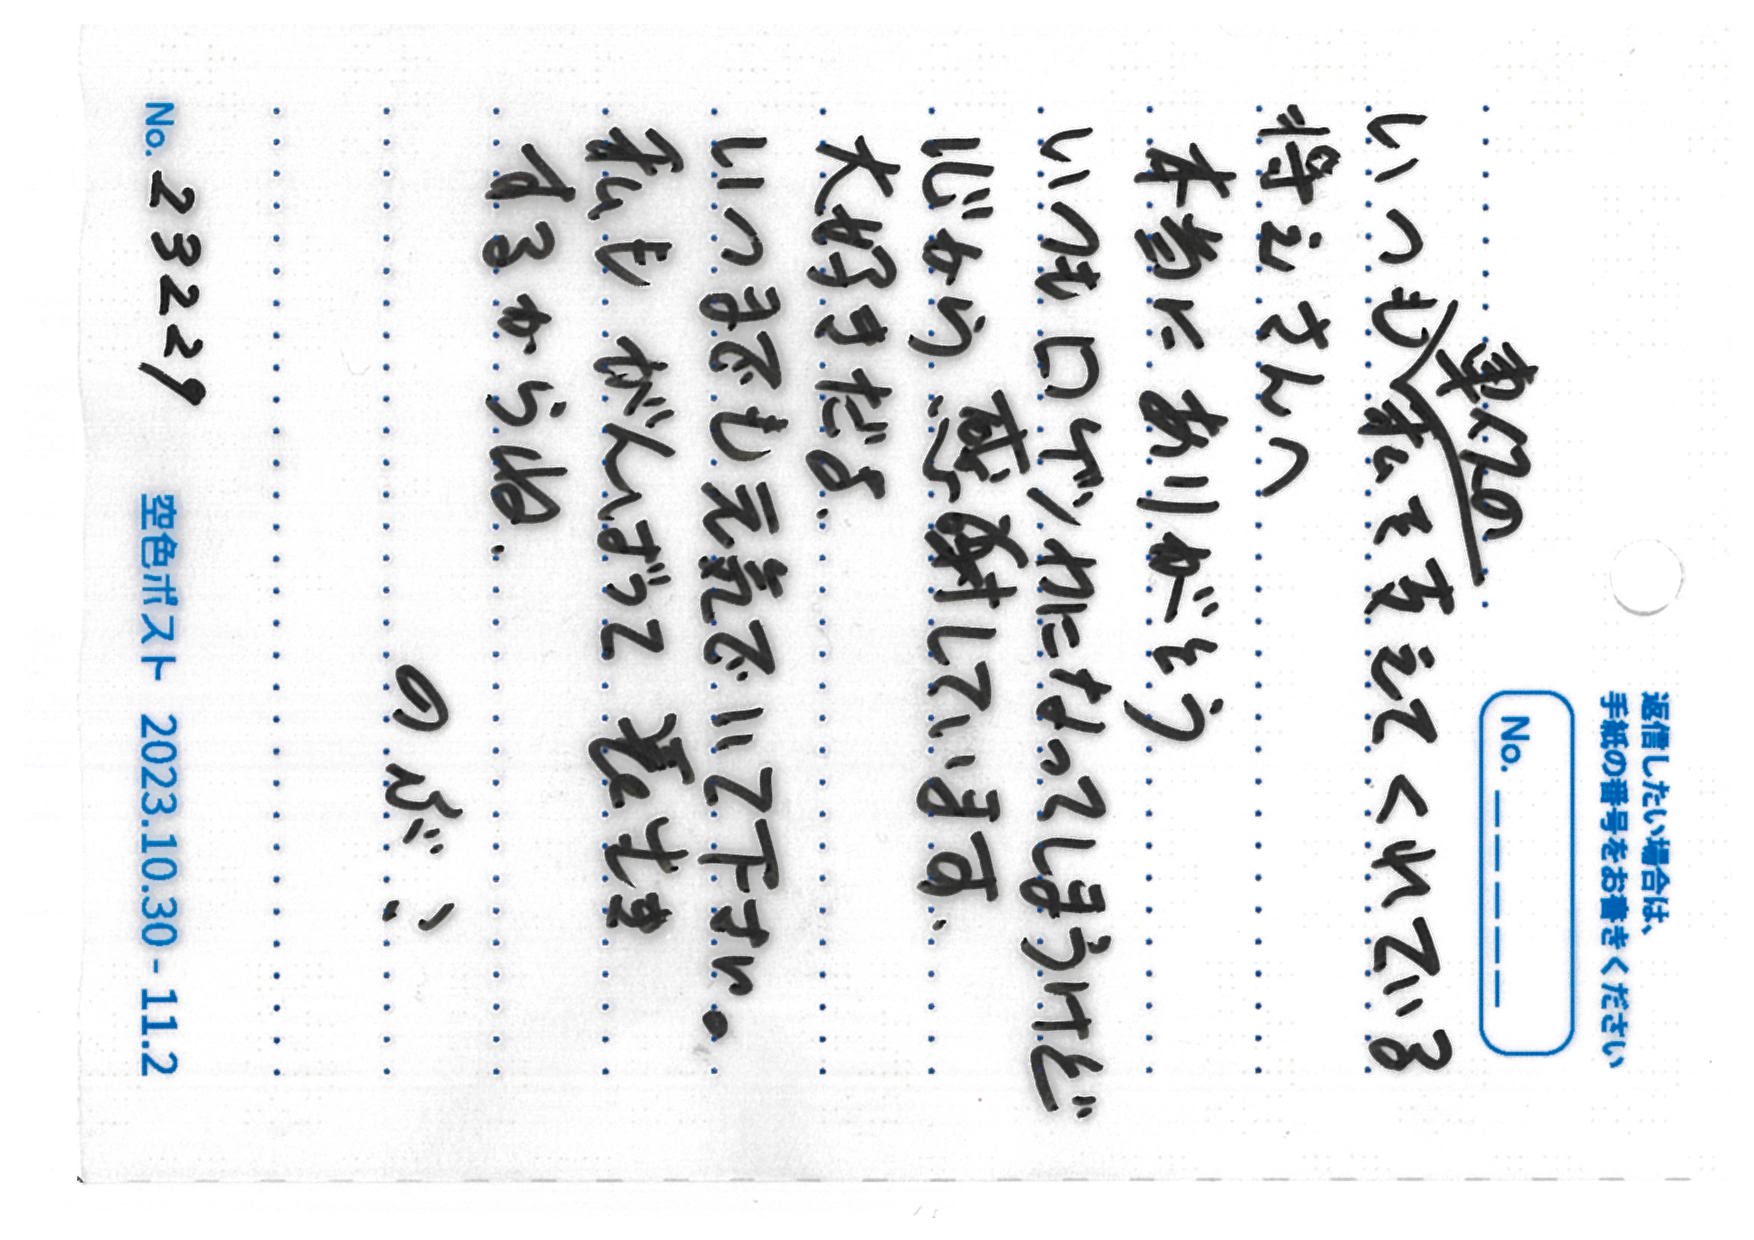 返信したい場合は、
手紙の番号をお書きください
No. _ _ _ _ _
車イスの
いつも私を支えてくれている
将えさんへ
本当にありがとう
いつも口ゲンカになってしまうけど
心から感謝しています、
大好きだよ、
いつまでも元気でいて下さい。
私もがんばって長生き
するからね、
のぶこ
No. 23229
空色ポスト 2023.10.30 - 11.2